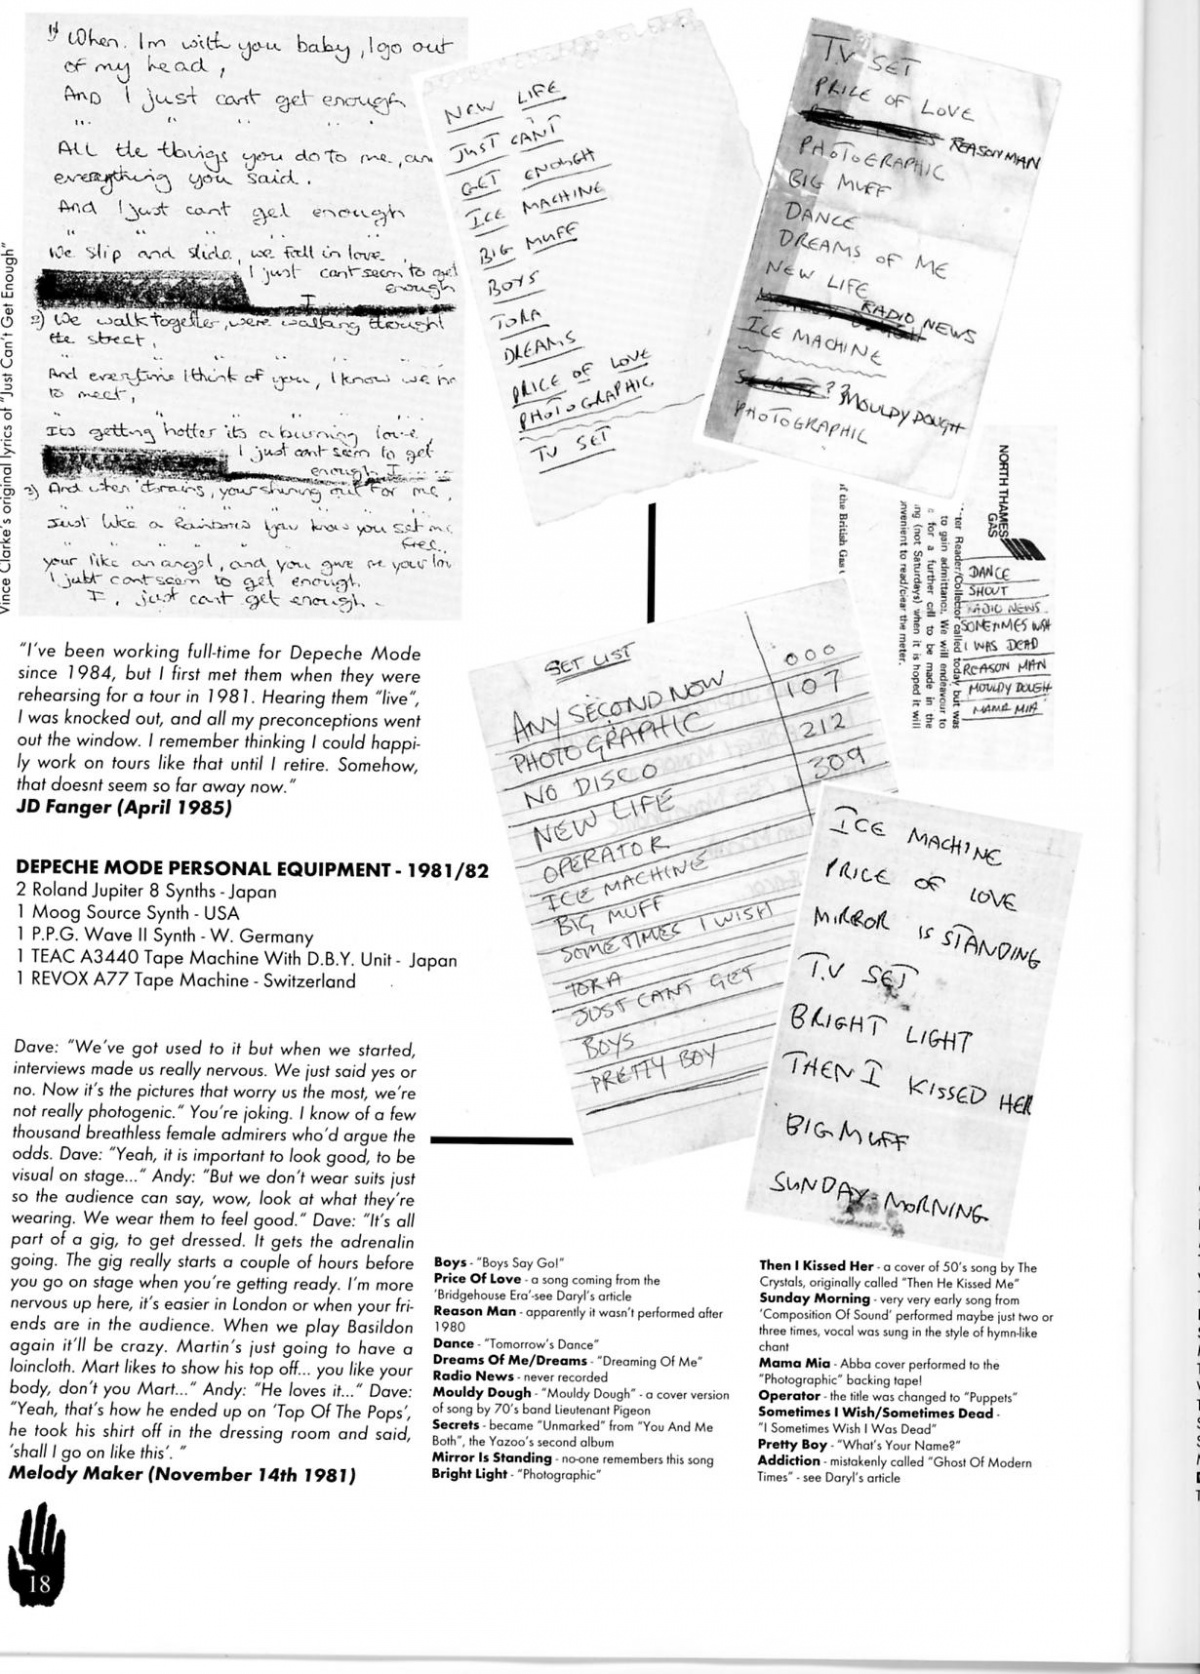 Vince Clarke's original lyrics of "Just Can't Get Enough"
1) When. I'm with you baby, I go out
of my head,
And I just cant get enough
"" " " " "
All the things you do to me, an
everything you said.
And I just cant get enough
" " " " "
We slip and slide, we fall in love
I just cant seem to get
enough
I
2) We walk together, were walking throught
the street,
And everytime I think of you, I know we
to meet,
Its getting hotter its a burning love,
I just cant seem to get
enough I......
3) And when it rains, your shining out for me,
Just like a Rainbow you know you set me
free..
your like an angel, and you give me your lov
I just cant seem to get enough.
I, just cant get enough.
NEW LIFE
JUST CAN'T
GET ENOUGH
ICE MACHINE
BIG MUFF
BOYS
TORA
DREAMS
PRICE OF LOVE
PHOTOGRAPHIC
TV SET
T.V SET
PRICE OF LOVE
REASON MAN
PHOTOGRAPHIC
BIG MUFF
DANCE
DREAMS OF ME
NEW LIFE
RADIO NEWS
ICE MACHINE
SECRETS ?? MOULDY DOUGH
PHOTOGRAPHIC
NORTH THAMES
GAS
f the British Gas
ter Reader/Collector called today but was
to gain admittance. We will endeavour to
s for a further call to be made in the
ng (not Saturdays) when it is hoped it will
nvenient to read/clear the meter.
DANCE
SHOUT
RADIO NEWS
SOMETIMES WISH
I WAS DEAD
REASON MAN
MOULDY DOUGH
MAMA MIA
SET LIST
ANY SECOND NOW 000
PHOTOGRAPHIC 107
NO DISCO 212
NEW LIFE 309
OPERATOR
ICE MACHINE
BIG MUFF
SOMETIMES I WISH
TORA
JUST CANT GET
BOYS
PRETTY BOY
ICE MACHINE
PRICE OF LOVE
MIRROR IS STANDING
T.V SET
BRIGHT LIGHT
THEN I KISSED HER
BIG MUFF
SUNDAY-MORNING
"I've been working full-time for Depeche Mode
since 1984, but I first met them when they were
rehearsing for a tour in 1981. Hearing them "live",
I was knocked out, and all my preconceptions went
out the window. I remember thinking I could happi-
ly work on tours like that until I retire. Somehow,
that doesnt seem so far away now."
JD Fanger (April 1985)
DEPECHE MODE PERSONAL EQUIPMENT - 1981/82
2 Roland Jupiter 8 Synths - Japan
1 Moog Source Synth - USA
1 P.P.G. Wave II Synth - W. Germany
1 TEAC A3440 Tape Machine With D.B.Y. Unit - Japan
1 REVOX A77 Tape Machine - Switzerland
Dave: "We've got used to it but when we started,
interviews made us really nervous. We just said yes or
no. Now it's the pictures that worry us the most, we're
not really photogenic." You're joking. I know of a few
thousand breathless female admirers who'd argue the
odds. Dave: "Yeah, it is important to look good, to be
visual on stage..." Andy: "But we don't wear suits just
so the audience can say, wow, look at what they're
wearing. We wear them to feel good." Dave: "It's all
part of a gig, to get dressed. It gets the adrenalin
going. The gig really starts a couple of hours before
you go on stage when you're getting ready. I'm more
nervous up here, it's easier in London or when your fri-
ends are in the audience. When we play Basildon
again it'll be crazy. Martin's just going to have a
loincloth. Mart likes to show his top off... you like your
body, don't you Mart..." Andy: "He loves it..." Dave:
"Yeah, that's how he ended up on 'Top Of The Pops',
he took his shirt off in the dressing room and said,
'shall I go on like this'. "
Melody Maker (November 14th 1981)
Boys - "Boys Say Go!"
Price Of Love - a song coming from the
'Bridgehouse Era'-see Daryl's article
Reason Man - apparently it wasn't performed after
1980
Dance - "Tomorrow's Dance"
Dreams Of Me/Dreams - "Dreaming Of Me"
Radio News - never recorded
Mouldy Dough - "Mouldy Dough" - a cover version
of song by 70's band Lieutenant Pigeon
Secrets - became "Unmarked" from "You And Me
Both", the Yazoo's second album
Mirror Is Standing - no-one remembers this song
Bright Light - "Photographic"
Then I Kissed Her - a cover of 50's song by The
Crystals, originally called "Then He Kissed Me"
Sunday Morning - very very early song from
'Composition Of Sound' performed maybe just two or
three times, vocal was sung in the style of hymn-like
chant
Mama Mia - Abba cover performed to the
"Photographic" backing tape!
Operator - the title was changed to "Puppets"
Sometimes I Wish/Sometimes Dead -
"I Sometimes Wish I Was Dead"
Pretty Boy - "What's Your Name?"
Addiction - mistakenly called "Ghost Of Modern
Times" - see Daryl's article
18